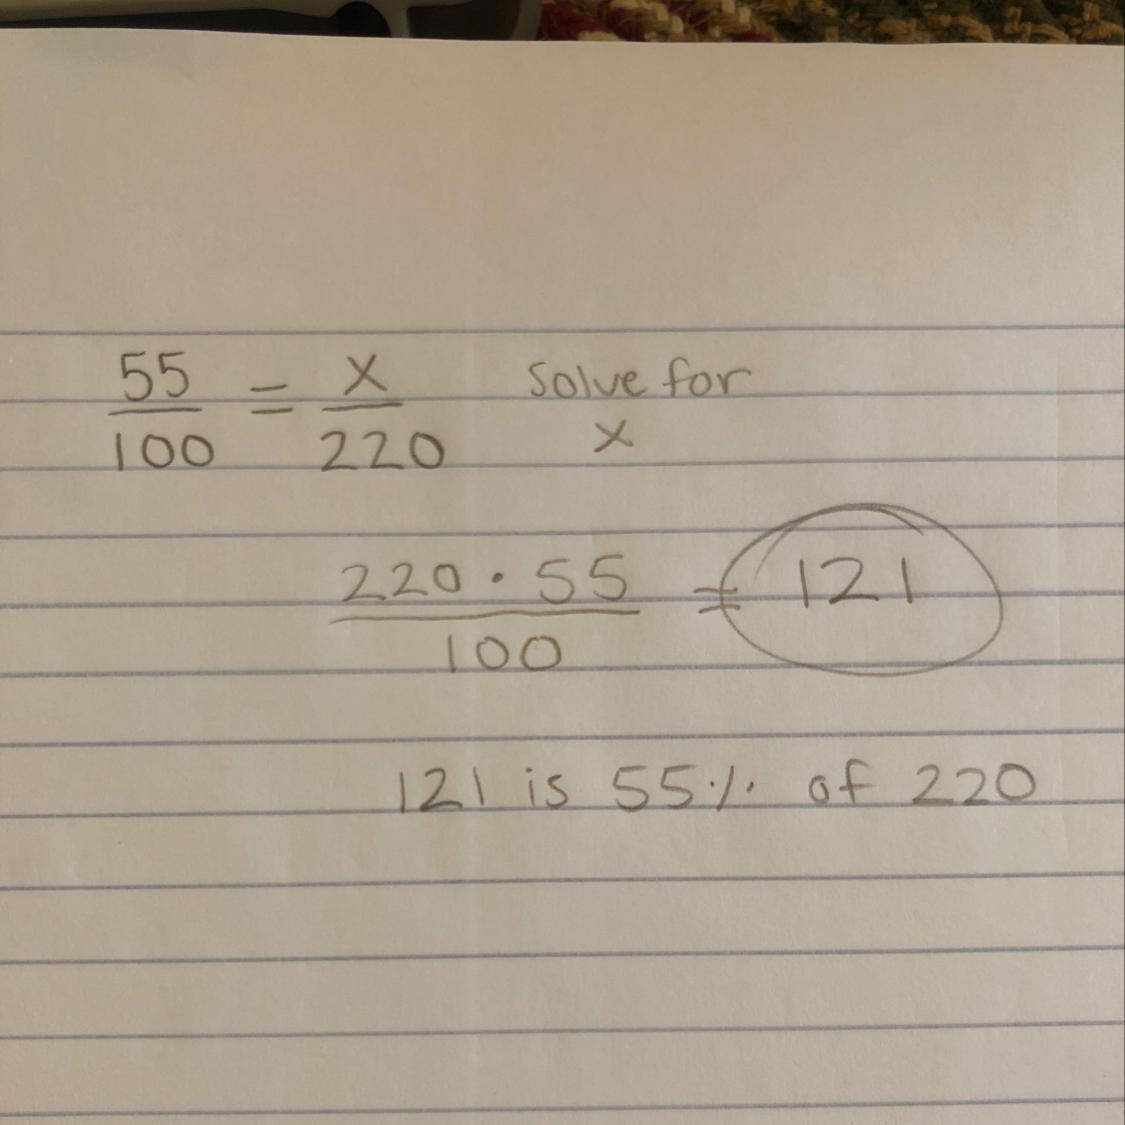 55/100 = x/220 solve for
x
220 · 55/100 = 121
121 is 55% of 220